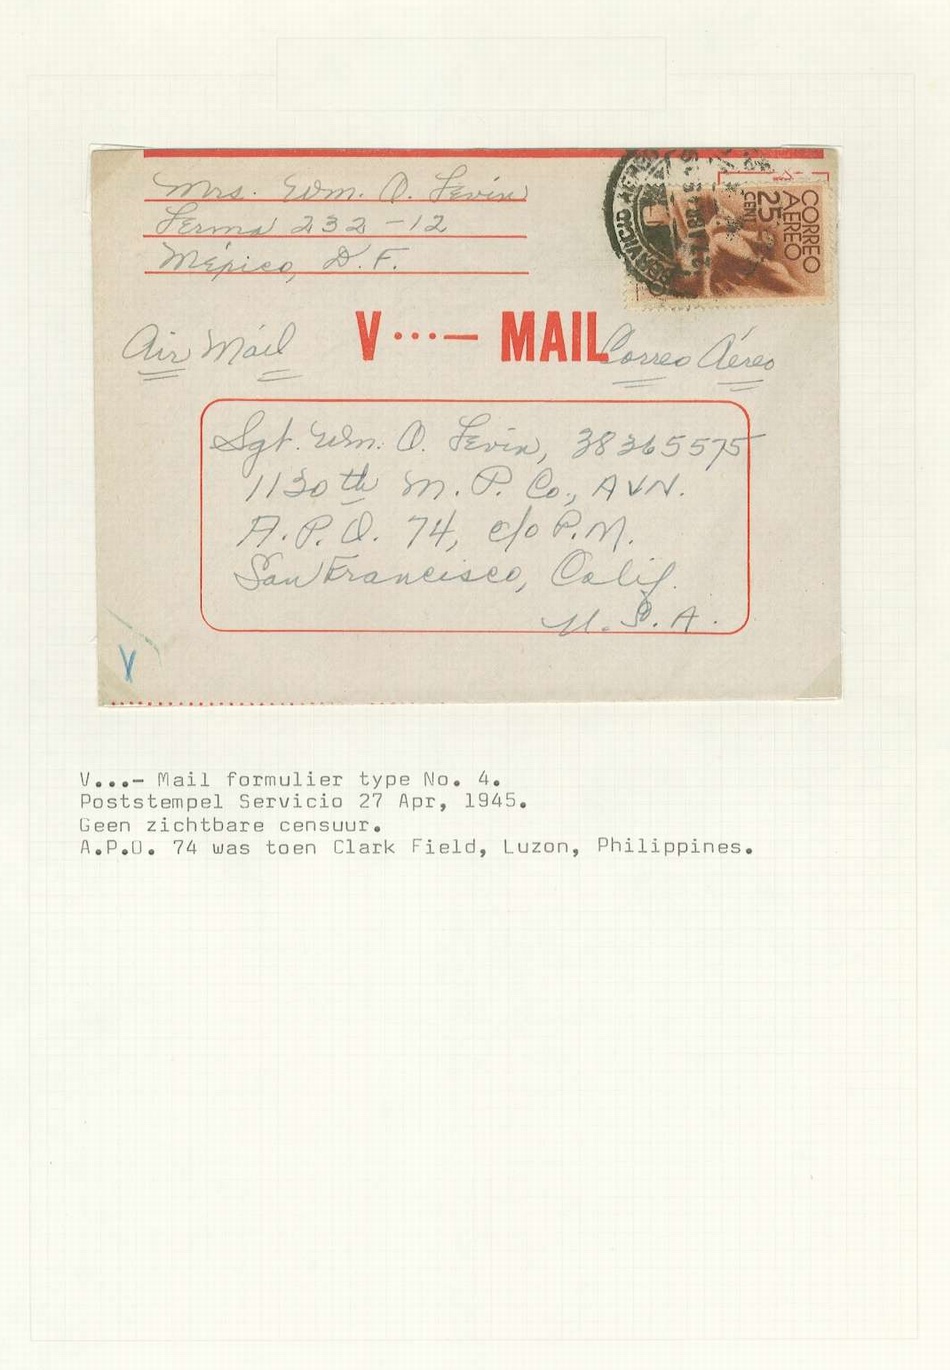 Mrs. Wm. O. Levin
Lerma 232-12
México, D.F.
CORREO
AEREO
25
CENT
SERVICIO AEREO
Air Mail
V...— MAIL
Correo Aéreo
Sgt. Wm. O. Levin, 38365575
1130th M. P. Co., AVN.
A.P.O. 74, c/o P.M.
San Francisco, Calif.
U.S.A.
V
V...- Mail formulier type No. 4.
Poststempel Servicio 27 Apr, 1945.
Geen zichtbare censuur.
A.P.O. 74 was toen Clark Field, Luzon, Philippines.